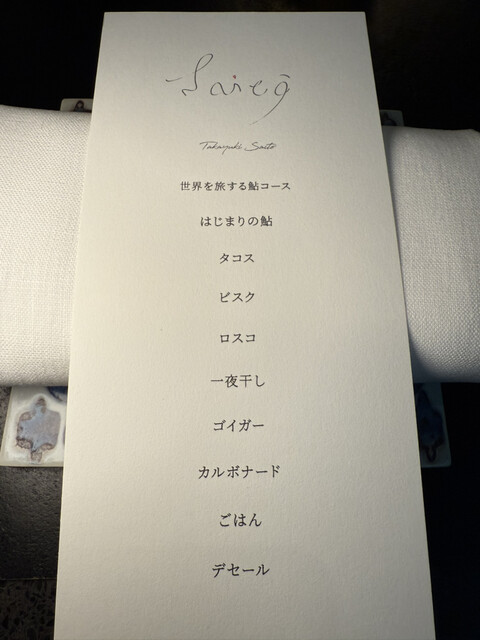 Takayuki Saito
世界を旅する鮎コース
はじまりの鮎
タコス
ビスク
ロスコ
一夜干し
ゴイガー
カルボナード
ごはん
デセール